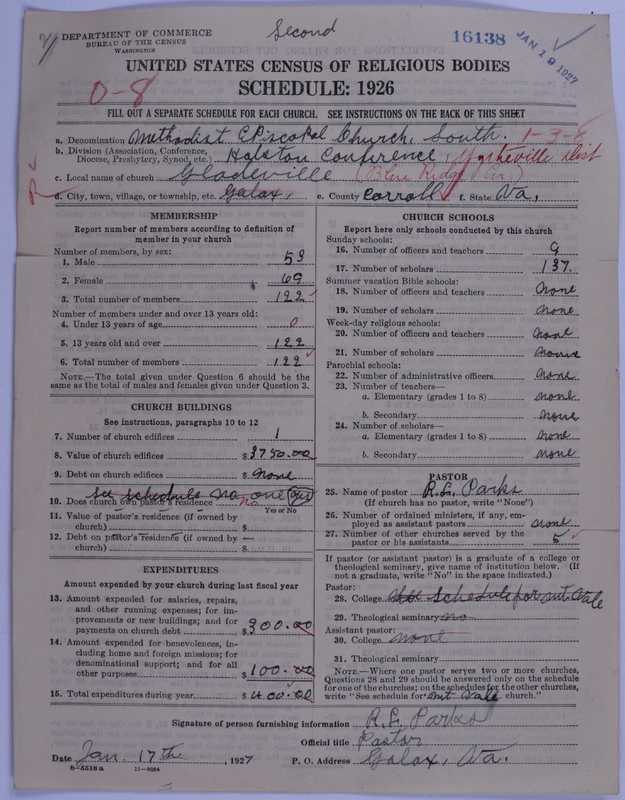 DEPARTMENT OF COMMERCE
BUREAU OF THE CENSUS
WASHINGTON
Second
16138
JAN 19 1927
UNITED STATES CENSUS OF RELIGIOUS BODIES
SCHEDULE: 1926
0-8
FILL OUT A SEPARATE SCHEDULE FOR EACH CHURCH. SEE INSTRUCTIONS ON THE BACK OF THIS SHEET
a. Denomination Methodist Episcopal Church, South. 1-3-8
b. Division (Association, Conference, Diocese, Presbytery, Synod, etc.) Holston Conference, Wytheville Dist
c. Local name of church Gladeville (Blue Ridge Cir.)
d. City, town, village, or township, etc. Galax, e. County Carroll f. State Va.
MEMBERSHIP
Report number of members according to definition of
member in your church
Number of members, by sex:
1. Male 53
2. Female 69
3. Total number of members 122
Number of members under and over 13 years old:
4. Under 13 years of age 0
5. 13 years old and over 122
6. Total number of members 122
NOTE.—The total given under Question 6 should be the
same as the total of males and females given under Question 3.
CHURCH BUILDINGS
See instructions, paragraphs 10 to 12
7. Number of church edifices 1
8. Value of church edifices $3750.00
9. Debt on church edifices $ none
See schedule no. one
10. Does church own pastor's residence no
Yes or No
11. Value of pastor's residence (if owned by
church) $
12. Debt on pastor's residence (if owned by
church) $
EXPENDITURES
Amount expended by your church during last fiscal year
13. Amount expended for salaries, repairs,
and other running expenses; for im-
provements or new buildings; and for
payments on church debt $300.00
14. Amount expended for benevolences, in-
cluding home and foreign missions; for
denominational support; and for all
other purposes $100.00
15. Total expenditures during year $400.00
CHURCH SCHOOLS
Report here only schools conducted by this church
Sunday schools:
16. Number of officers and teachers 9
17. Number of scholars 137.
Summer vacation Bible schools:
18. Number of officers and teachers none
19. Number of scholars none
Week-day religious schools:
20. Number of officers and teachers none
21. Number of scholars none
Parochial schools:
22. Number of administrative officers none
23. Number of teachers—
a. Elementary (grades 1 to 8) none
b. Secondary none
24. Number of scholars—
a. Elementary (grades 1 to 8) none
b. Secondary none
PASTOR
25. Name of pastor R.E. Parks
(If church has no pastor, write "None")
26. Number of ordained ministers, if any, em-
ployed as assistant pastors none
27. Number of other churches served by the
pastor or his assistants 5
If pastor (or assistant pastor) is a graduate of a college or
theological seminary, give name of institution below. (If
not a graduate, write "No" in the space indicated.)
Pastor:
28. College See Schedule for Mt Vale
29. Theological seminary no
Assistant pastor:
30. College none
31. Theological seminary
NOTE.—Where one pastor serves two or more churches,
Questions 28 and 29 should be answered only on the schedule
for one of the churches; on the schedules for the other churches,
write "See schedule for Mt Vale church."
Signature of person furnishing information R.E. Parks
Official title Pastor
Date Jan. 17th, 1927 P. O. Address Galax, Va.
8-5518a 11-9084